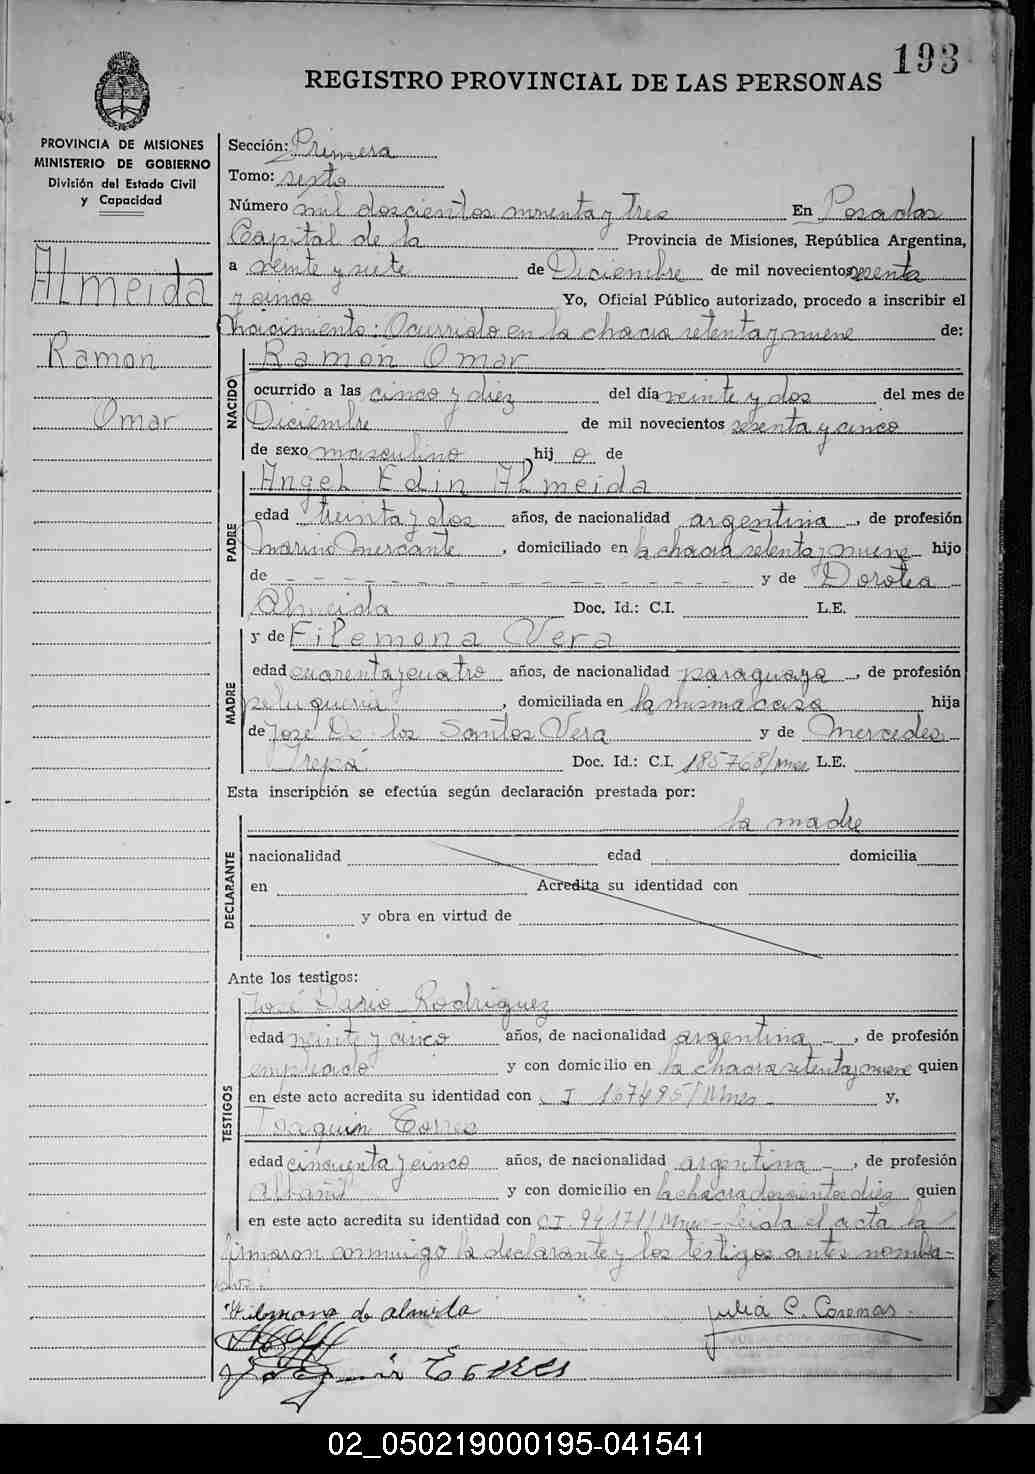 193
REGISTRO PROVINCIAL DE LAS PERSONAS
PROVINCIA DE MISIONES
MINISTERIO DE GOBIERNO
División del Estado Civil
y Capacidad
Almeida
Ramon
Omar
Sección: Primera
Tomo: sexto
Número mil doscientos noventa y tres En Posadas
Capital de la Provincia de Misiones, República Argentina,
a veinte y siete de Diciembre de mil novecientos sesenta
y cinco Yo, Oficial Público autorizado, procedo a inscribir el
Nacimiento: Ocurrido en la chacra setenta y nueve de:
NACIDO
Ramon Omar
ocurrido a las cinco y diez del día veinte y dos del mes de
Diciembre de mil novecientos sesenta y cinco
de sexo masculino, hijo de
PADRE
Angel Edin Almeida
edad treinta y dos años, de nacionalidad argentina, de profesión
Marino Mercante, domiciliado en la chacra setenta y nueve hijo
de y de Dorotea
Almeida Doc. Id.: C.I. L.E.
MADRE
y de Filemona Vera
edad cuarenta y cuatro años, de nacionalidad paraguaya, de profesión
peluqueria, domiciliada en la misma casa hija
de José De los Santos Vera y de Mercedes
Doc. Id.: C.I. 185768/Mnes L.E.
Esta inscripción se efectúa según declaración prestada por:
la madre
DECLARANTE
nacionalidad edad domicilia
en Acredita su identidad con
y obra en virtud de
Ante los testigos:
TESTIGOS
José Dario Rodriguez
edad veinte y cinco años, de nacionalidad argentina, de profesión
empleado y con domicilio en la chacra setenta y nueve quien
en este acto acredita su identidad con C I 167495/Mnes y,
Joaquin Torres
edad cincuenta y cinco años, de nacionalidad argentina, de profesión
Albañil y con domicilio en la chacra doscientos diez quien
en este acto acredita su identidad con C I. 94171/Mnes - Leida el acta la
firmaron conmigo la declarante y los testigos antes nombra-
dos.
Filemona de almeida
Julia C.
Joaquin Torres
02_050219000195-041541